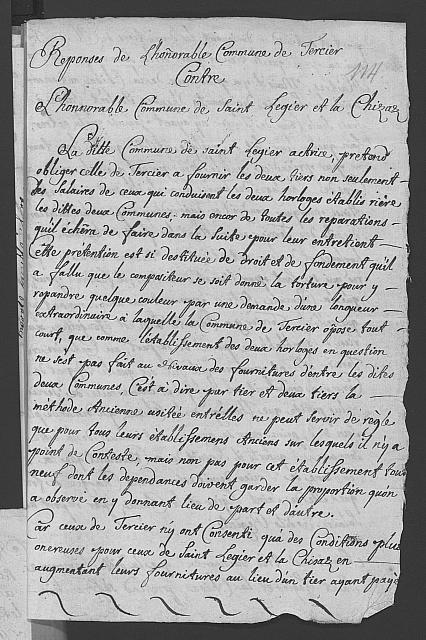 Reponses de L'honorable Commune de Tercier
Contre
114
L'honnorable Commune de Saint Legier et la Chiésaz
La ditte Commune de saint Legier actrice, pretend
obliger celle de Tercier a fournir les deux tiers non seulement
des salaires de ceux qui conduisent les deux horloges établis rière
les dittes deux Communes, mais encor de toutes les reparations
qu'il échèra de faire dans la suite pour leur entretient
Cette prétention est si destituée de droit et de fondement qu'il
a fallu que le compositeur se soit donné la torture pour y
repandre quelque couleur par une demande d'une longueur
extraordinaire a laquelle la Commune de Tercier opose tout
court, que comme l'établissement des deux horloges en question
ne s'est pas fait au des fournitures d'entre les dites
deux Communes, C'est a dire par tier et deux tiers la
méthode Ancienne usitée entr'elles ne peut servir de regle
que pour tous leurs établissemens Anciens sur lesquels il n'y a
point de Conteste, mais non pas pour cet établissement tout
neuf dont les dependances doivent garder la proportion qu'on
a observé en y donnant lieu de part et d'autre.
Car ceux de Tercier n'y ont Consenti qu'a des Conditions plus
onereuses pour ceux de Saint Legier et la Chiésaz en
augmentant leurs fournitures au lieu d'un tier ayant payé